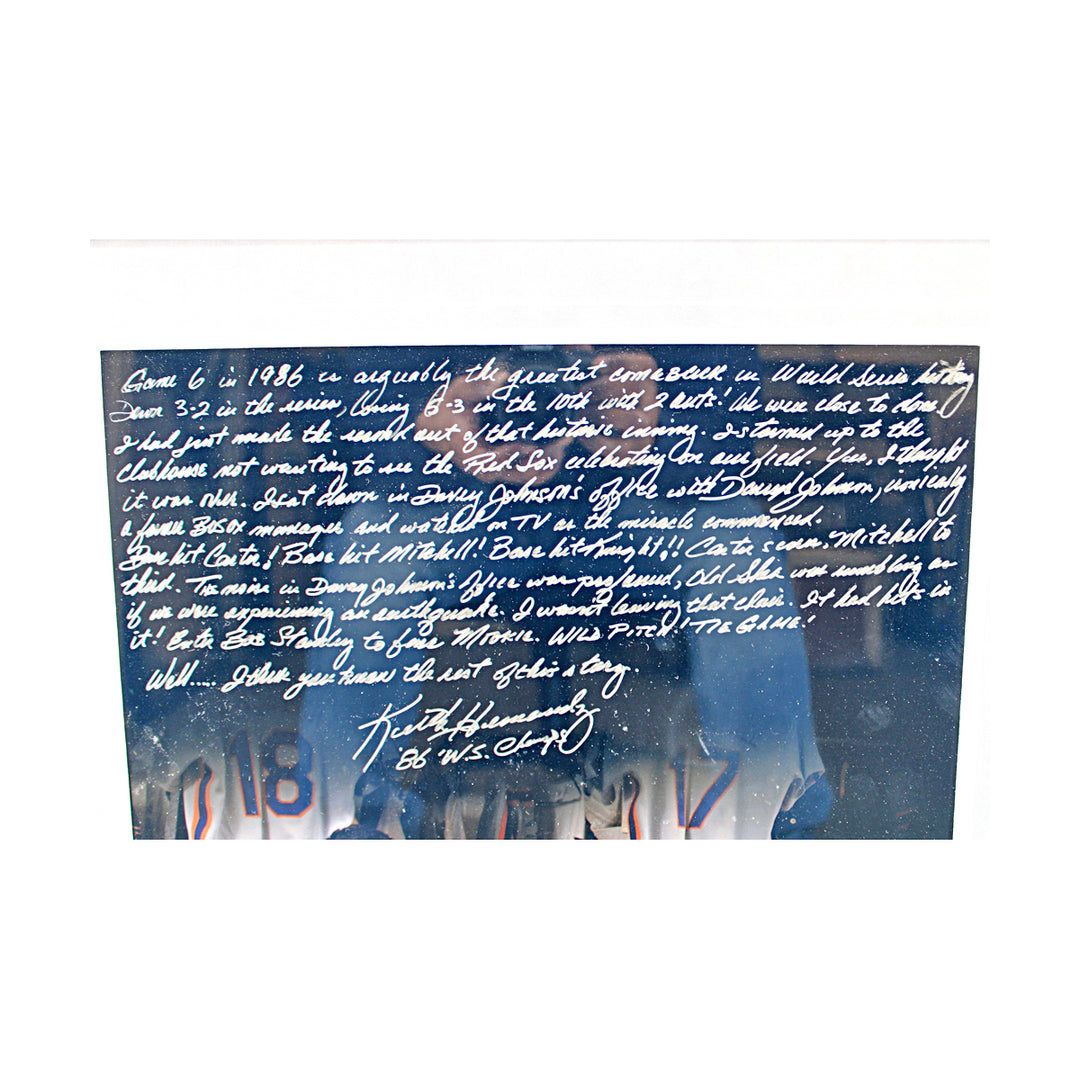 Game 6 in 1986 is arguably the greatest comeback in World Series history
Down 3-2 in the series, losing 5-3 in the 10th with 2 outs! We were close to done.
I had just made the second out of that historic inning. I stormed up to the
clubhouse not wanting to see the Red Sox celebrating on our field. Yes, I thought
it was over. I sat down in Davey Johnson's office with Darrell Johnson, ironically
a former BoSox manager and watched on TV as the miracle commenced.
Base hit Carter! Base hit Mitchell! Base hit Knight!! Carter scores. Mitchell to
third. The noise in Davey Johnson's office was profound, Old Shea was rumbling as
if we were experiencing an earthquake. I wasn't leaving that chair. It had hits in
it! Enter Bob Stanley to face Mookie. WILD PITCH! TIE GAME!
Well..... I think you know the rest of this story.
Keith Hernandez
'86 W.S. Champs
18 17